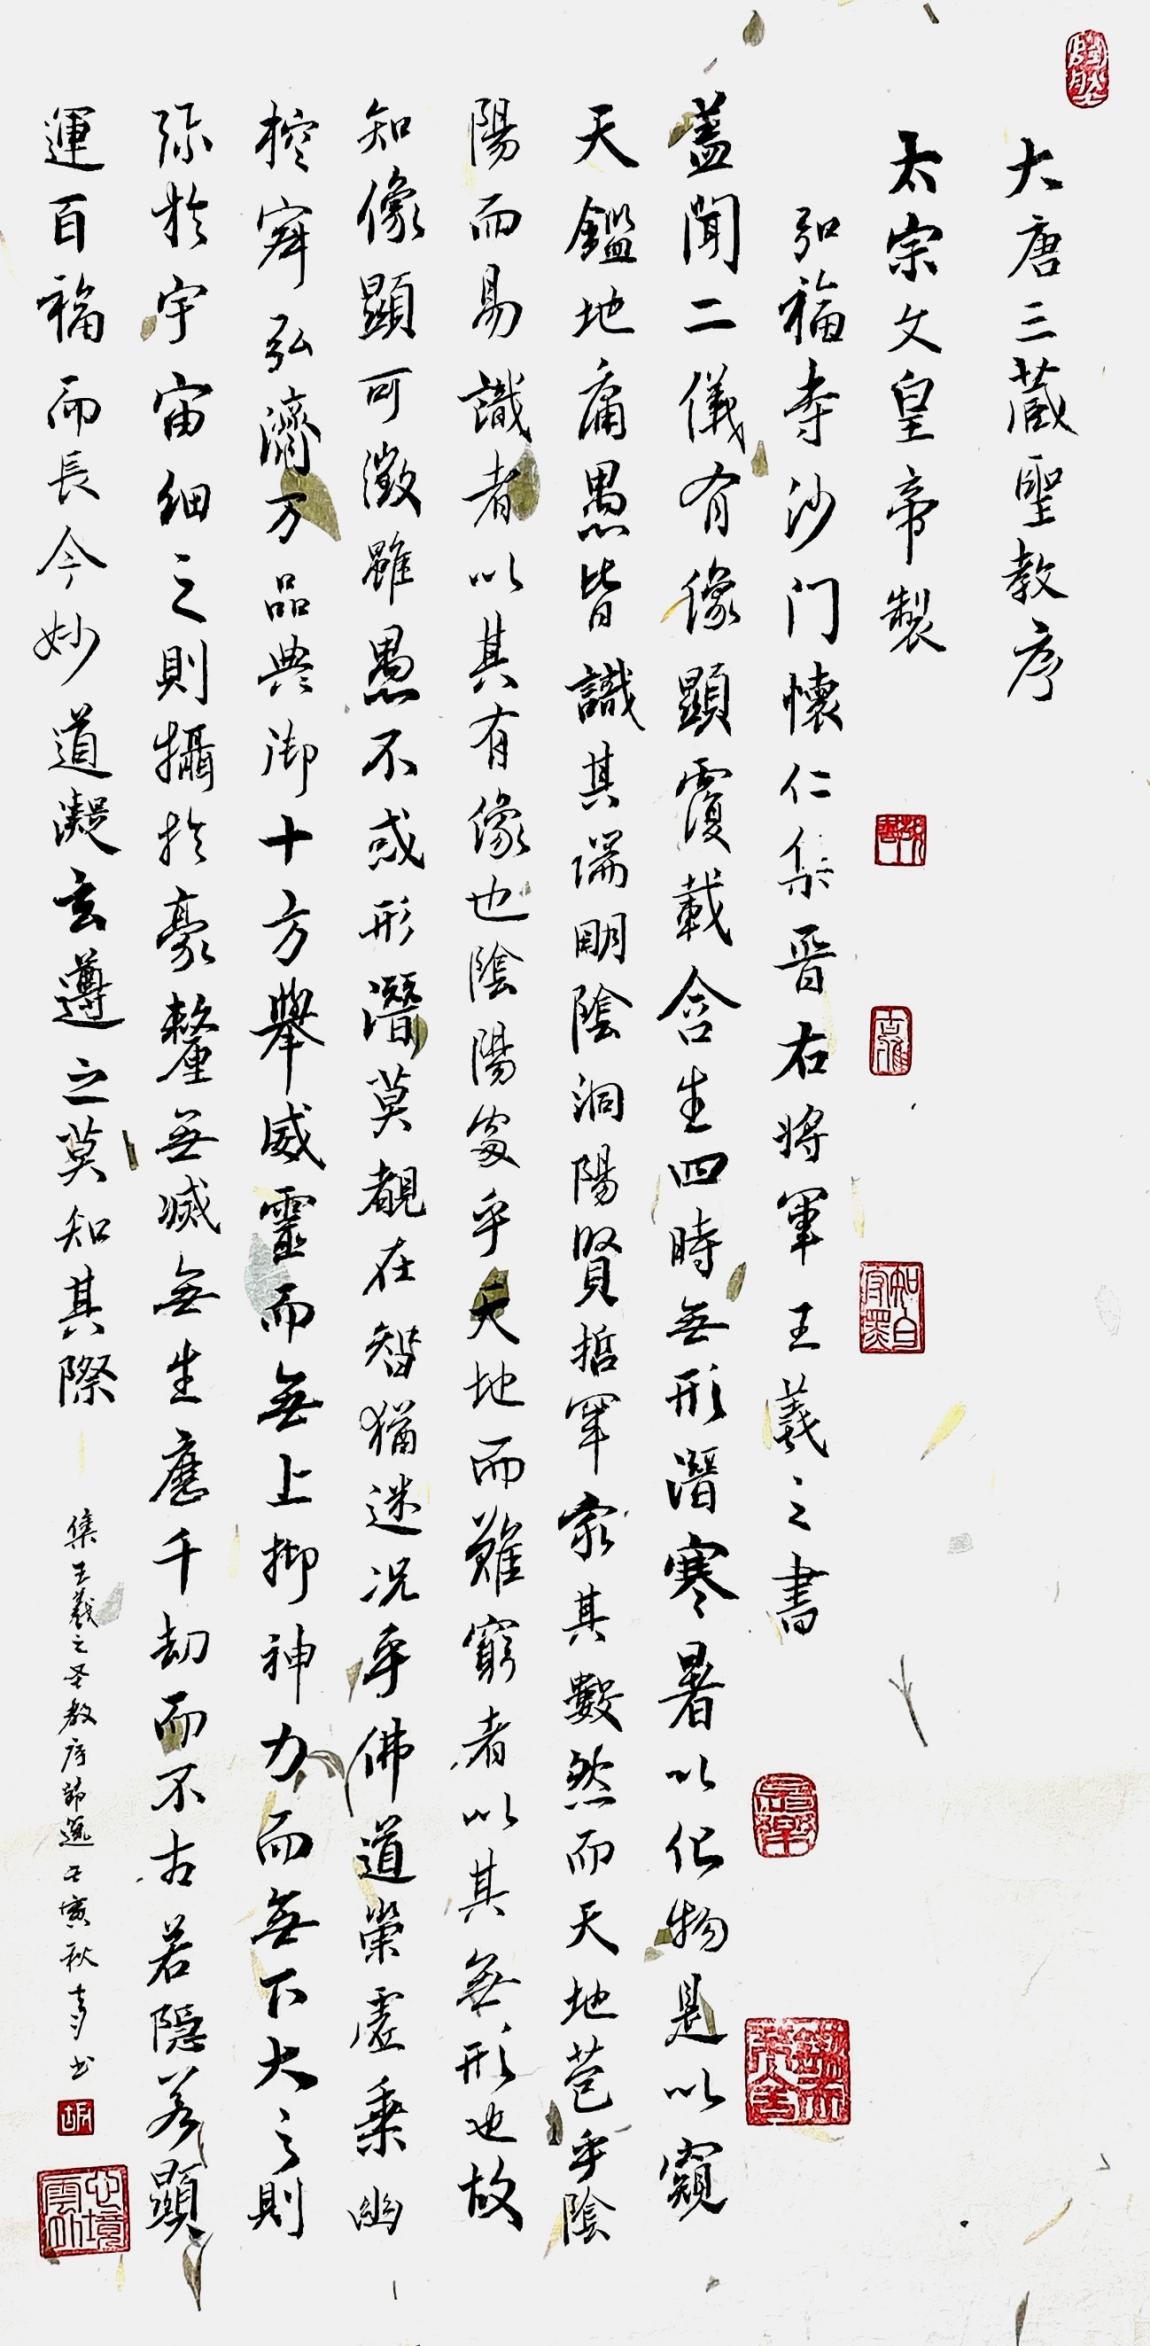 大唐三藏聖教序
太宗文皇帝製
弘福寺沙门懷仁集晋右将軍王羲之書
蓋聞二儀有像顯覆載含生四時無形潛寒暑以化物是以窺
天鑑地庸愚皆識其端明陰洞陽賢哲罕窮其數然而天地苞乎陰
陽而易識者以其有像也陰陽處乎天地而難窮者以其無形也故
知像顯可徵雖愚不惑形潛莫覩在智猶迷况乎佛道崇虛乗幽
控寂弘濟万品典御十方舉威靈而無上抑神力而無下大之則
弥於宇宙細之則攝於豪釐無滅無生歷千劫而不古若隐若顯
運百福而長今妙道凝玄遵之莫知其際
集王羲之圣教序節選壬寅秋 书
知白守黑
心境雲水